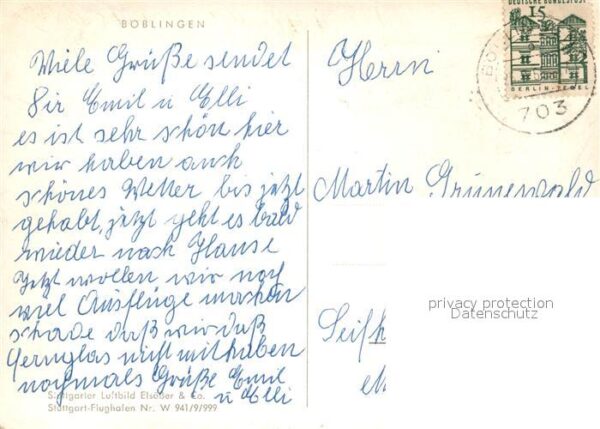 BÖBLINGEN
Viele Grüße sendet
Dir Emil u Elli
es ist sehr schön hier
wir haben auch
schönes Wetter bis jetzt
gehabt, jetzt geht es bald
wieder nach Hause
Jetzt wollen wir noch
viel Ausflüge machen
schade daß wir daß
Fernglas nicht mit haben
nochmals Grüße Emil
u Elli
Stuttgarter Luftbild Elsäßer & Co.
Stuttgart-Flughafen Nr. W 941/9/999
DEUTSCHE BUNDESPOST
15
BERLIN-TEGEL
703
Herrn
Martin Grünewald
privacy protection
Datenschutz
Seifh